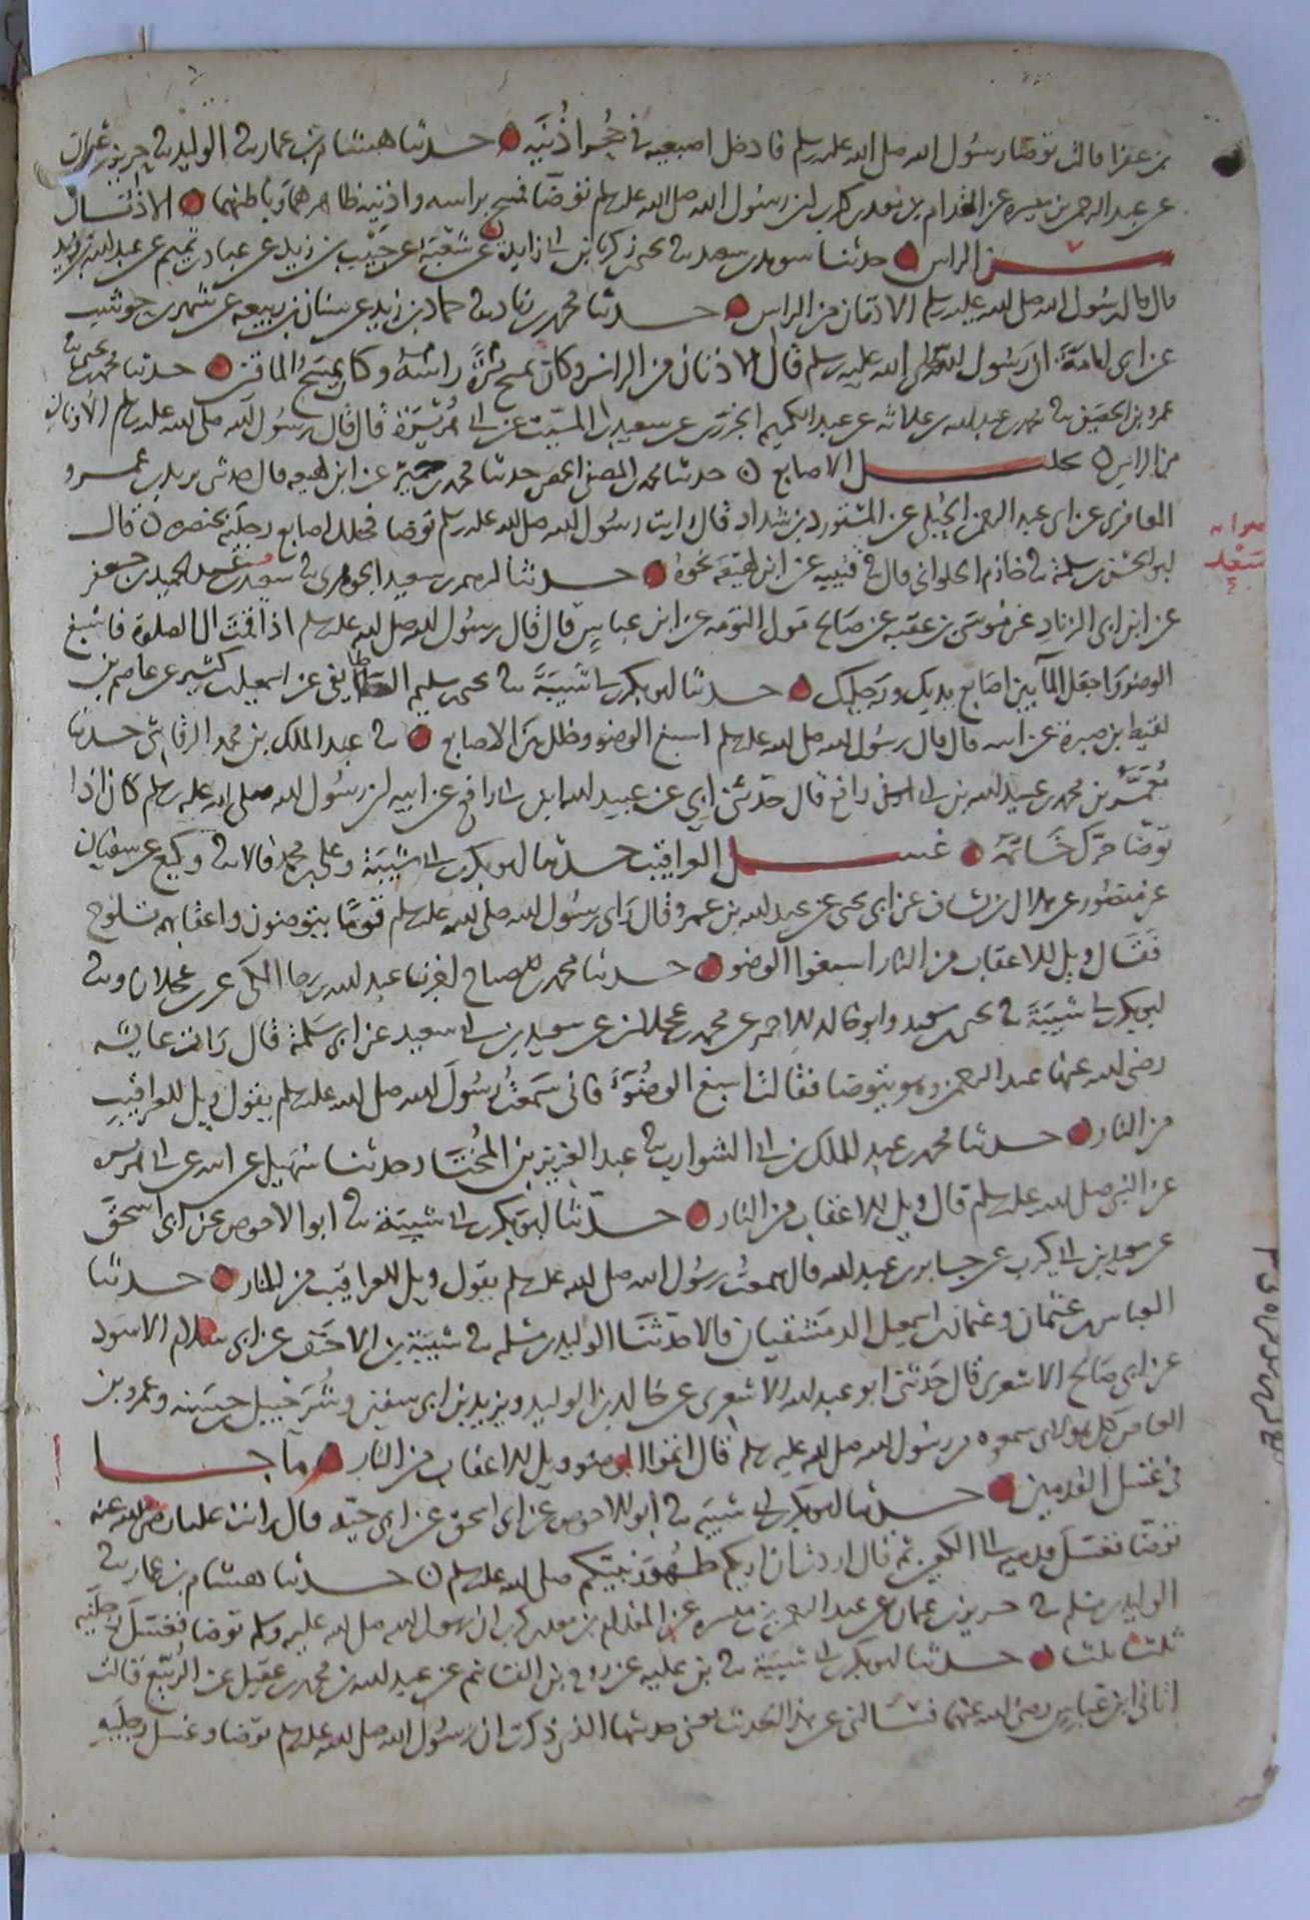 بن عفرا قالت توضا رسول الله صلى الله عليه وسلم فادخل اصبعيه في جحري اذنيه حدثنا هشام بن عمار ثنا الوليد ثنا حريز بن عثمان
عن عبد الرحمن بن ميسرة عن المقدام بن معدي كرب ان رسول الله صلى الله عليه وسلم توضا فمسح براسه واذنيه ظاهرهما وباطنهما الاذنان
من الراس حدثنا سويد بن سعيد ثنا يحيى بن زكريا بن ابي زايدة عن شعبة عن حبيب بن زيد عن عباد بن تميم عن عبد الله بن زيد
قال قال رسول الله صلى الله عليه وسلم الاذنان من الراس حدثنا محمد بن زياد ثنا حماد بن زيد عن سنان بن ربيعة عن شهر بن حوشب
عن ابي امامة ان رسول الله صلى الله عليه وسلم قال الاذنان من الراس وكان يمسح راسه مرة وكان يمسح الماقين حدثنا محمد بن يحيى ثنا
عمرو بن الحصين ثنا محمد بن عبد الله بن علاثة عن عبد الكريم الجزري عن سعيد بن المسيب عن ابي هريرة قال قال رسول الله صلى الله عليه وسلم الاذنان
من الراس تخليل الاصابع حدثنا محمد بن المصفى الحمصي حدثنا محمد بن حمير عن ابن لهيعة قال حدثني يزيد بن عمرو
المعافري عن ابي عبد الرحمن الحبلي عن المستورد بن شداد قال رايت رسول الله صلى الله عليه وسلم توضا فخلل اصابع رجليه بخنصره قال
ابو الحسن بن سلمة ثنا خازم الحلواني قال ثنا قتيبة عن ابن لهيعة نحوه حدثنا ابرهيم بن سعيد الجوهري ثنا سعد بن عبد الحميد بن جعفر
عن ابن ابي الزناد عن موسى بن عقبة عن صالح مولى التومة عن ابن عباس قال قال رسول الله صلى الله عليه وسلم اذا قمت الى الصلوة فاسبغ
الوضو واجعل الما بين اصابع يديك ورجليك حدثنا ابو بكر بن ابي شيبة ثنا يحيى بن سليم الطايفي عن اسمعيل بن كثير عن عاصم بن
لقيط بن صبرة عن ابيه قال قال رسول الله صلى الله عليه وسلم اسبغ الوضو وخلل بين الاصابع ثنا عبد الملك بن محمد الرقاشي حدثنا
معمر بن محمد بن عبيد الله بن ابي رافع قال حدثني ابي عن عبيد الله بن ابي رافع عن ابيه ان رسول الله صلى الله عليه وسلم كان اذا
توضا حرك خاتمه غسل العراقيب حدثنا ابو بكر بن ابي شيبة وعلي بن محمد قالا ثنا وكيع عن سفيان
عن منصور عن هلال بن يساف عن ابي يحيى عن عبد الله بن عمرو قال راى رسول الله صلى الله عليه وسلم قوما يتوضون واعقابهم تلوح
فقال ويل للاعقاب من النار اسبغوا الوضو حدثنا محمد بن الصباح اخبرنا عبد الله بن رجا المكي عن ابن عجلان وثنا
ابو بكر بن ابي شيبة ثنا يحيى بن سعيد وابو خالد الاحمر عن محمد بن عجلان عن سعيد بن ابي سعيد عن ابي سلمة قال رات عايشة
رضي الله عنها عبد الرحمن وهو يتوضا فقالت اسبغ الوضوء فاني سمعت رسول الله صلى الله عليه وسلم يقول ويل للعراقيب
من النار حدثنا محمد بن عبد الملك بن ابي الشوارب ثنا عبد العزيز بن المختار حدثنا سهيل عن ابيه عن ابي هريرة
عن النبي صلى الله عليه وسلم قال ويل للاعقاب من النار حدثنا ابو بكر بن ابي شيبة ثنا ابو الاحوص عن ابي اسحق
عن سعيد بن ابي كرب عن جابر بن عبد الله قال سمعت رسول الله صلى الله عليه وسلم يقول ويل للعراقيب من النار حدثنا
العباس بن عثمان وعثمان بن اسمعيل الدمشقيان قالا حدثنا الوليد بن مسلم ثنا شيبة بن الاحنف عن ابي سلام الاسود
عن ابي صالح الاشعري قال حدثني ابو عبد الله الاشعري عن خالد بن الوليد ويزيد بن ابي سفين وشرحبيل بن حسنة وعمرو بن
العاص كل هولاء سمعوه من رسول الله صلى الله عليه وسلم قال اتموا الوضو ويل للاعقاب من النار ما جا
في غسل القدمين حدثنا ابو بكر بن ابي شيبة ثنا ابو الاحوص عن ابي اسحق عن ابي حية قال رايت عليا رضي الله عنه
توضا فغسل قدميه الى الكعبين ثم قال اردت ان اريكم طهور نبيكم صلى الله عليه وسلم حدثنا هشام بن عمار ثنا
الوليد بن مسلم ثنا حريز بن عثمان عن عبد الرحمن بن ميسرة عن المقدام بن معدي كرب ان رسول الله صلى الله عليه وسلم توضا فغسل رجليه
ثلثا ثلثا حدثنا ابو بكر بن ابي شيبة ثنا بن علية عن روح بن القاسم عن عبد الله بن محمد بن عقيل عن الربيع قالت
اتاني ابن عباس رضي الله عنهما فسالني عن هذا الحديث يعني حديثها الذي ذكرت ان رسول الله صلى الله عليه وسلم توضا وغسل رجليه
صوابه
سعد